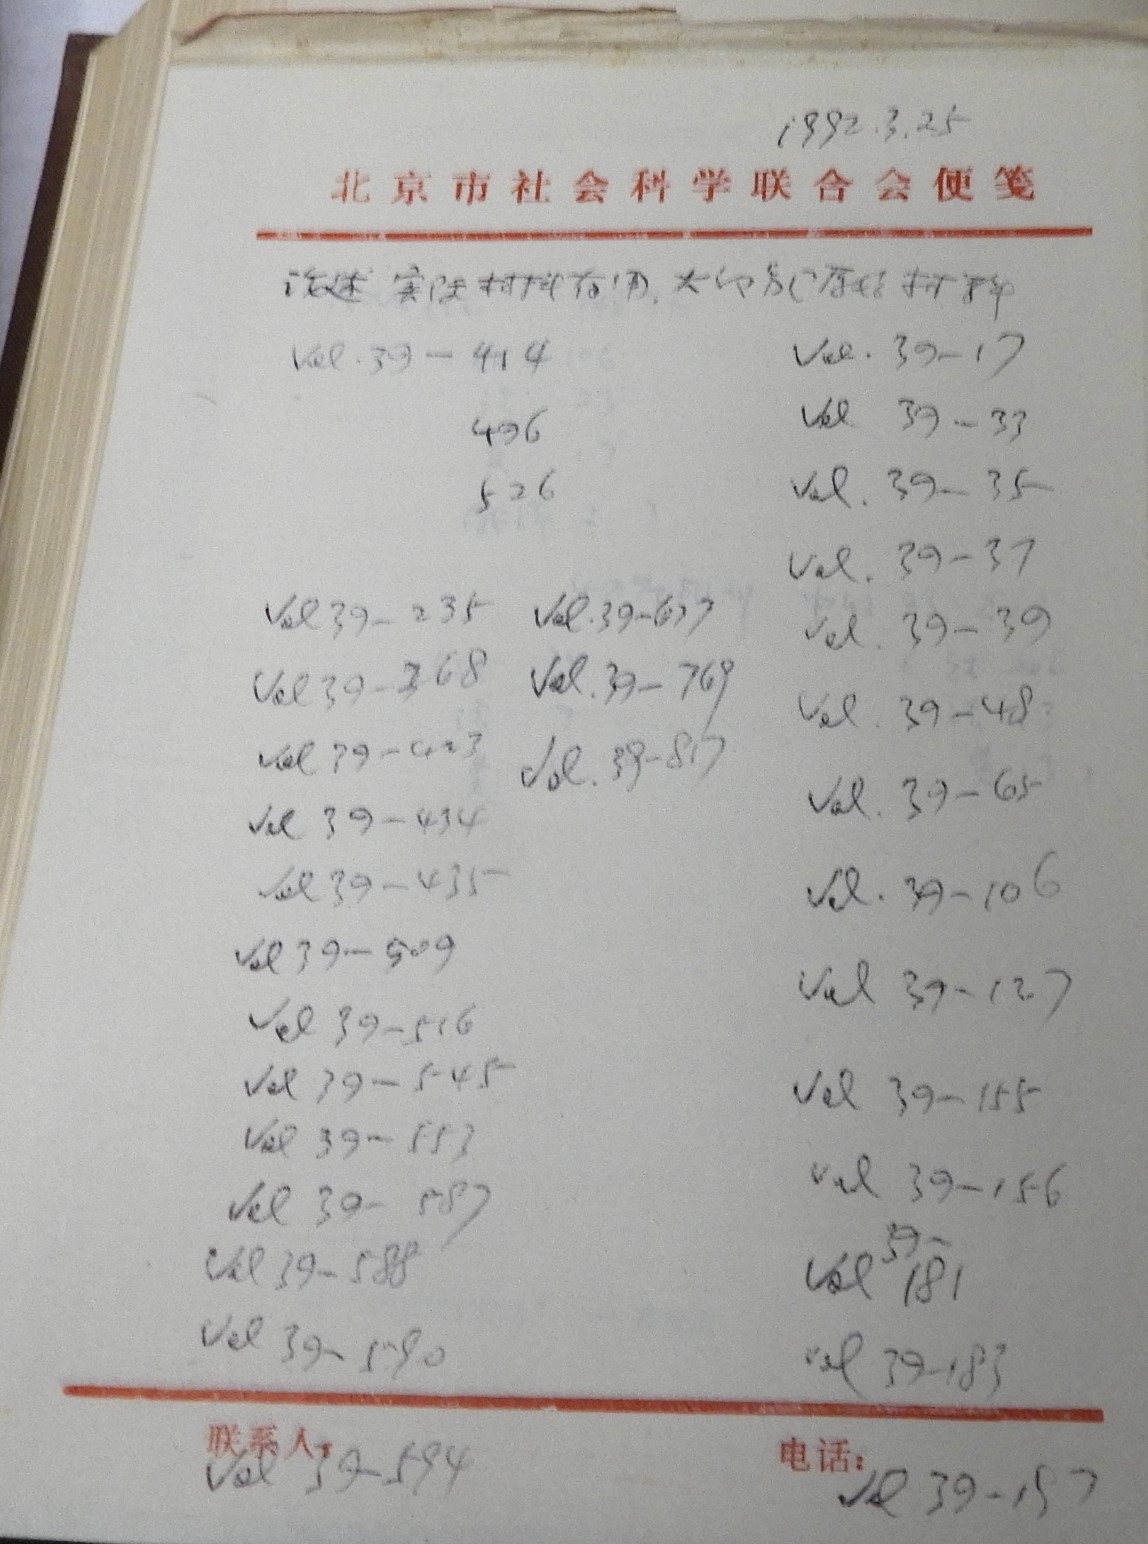 1992.3.25
北京市社会科学联合会便笺
论述 实际材料有用,
Vol.39-414
496
526
Vol 39-235
Vol 39-368
Vol 39-423
Vol 39-434
Vol 39-435
Vol 39-509
Vol 39-516
Vol 39-545
Vol 39-553
Vol 39-587
Vol 39-588
Vol 39-590
Vol.39-677
Vol.39-769
Vol.39-817
Vol. 39-17
Vol 39-33
Vol. 39-35
Vol. 39-37
Vol. 39-39
Vol. 39-48
Vol. 39-65
Vol. 39-106
Vol 39-127
Vol 39-155
Vol 39-156
Vol 39-181
Vol 39-183
联系人：
Vol 39-594
电话：
Vol 39-197